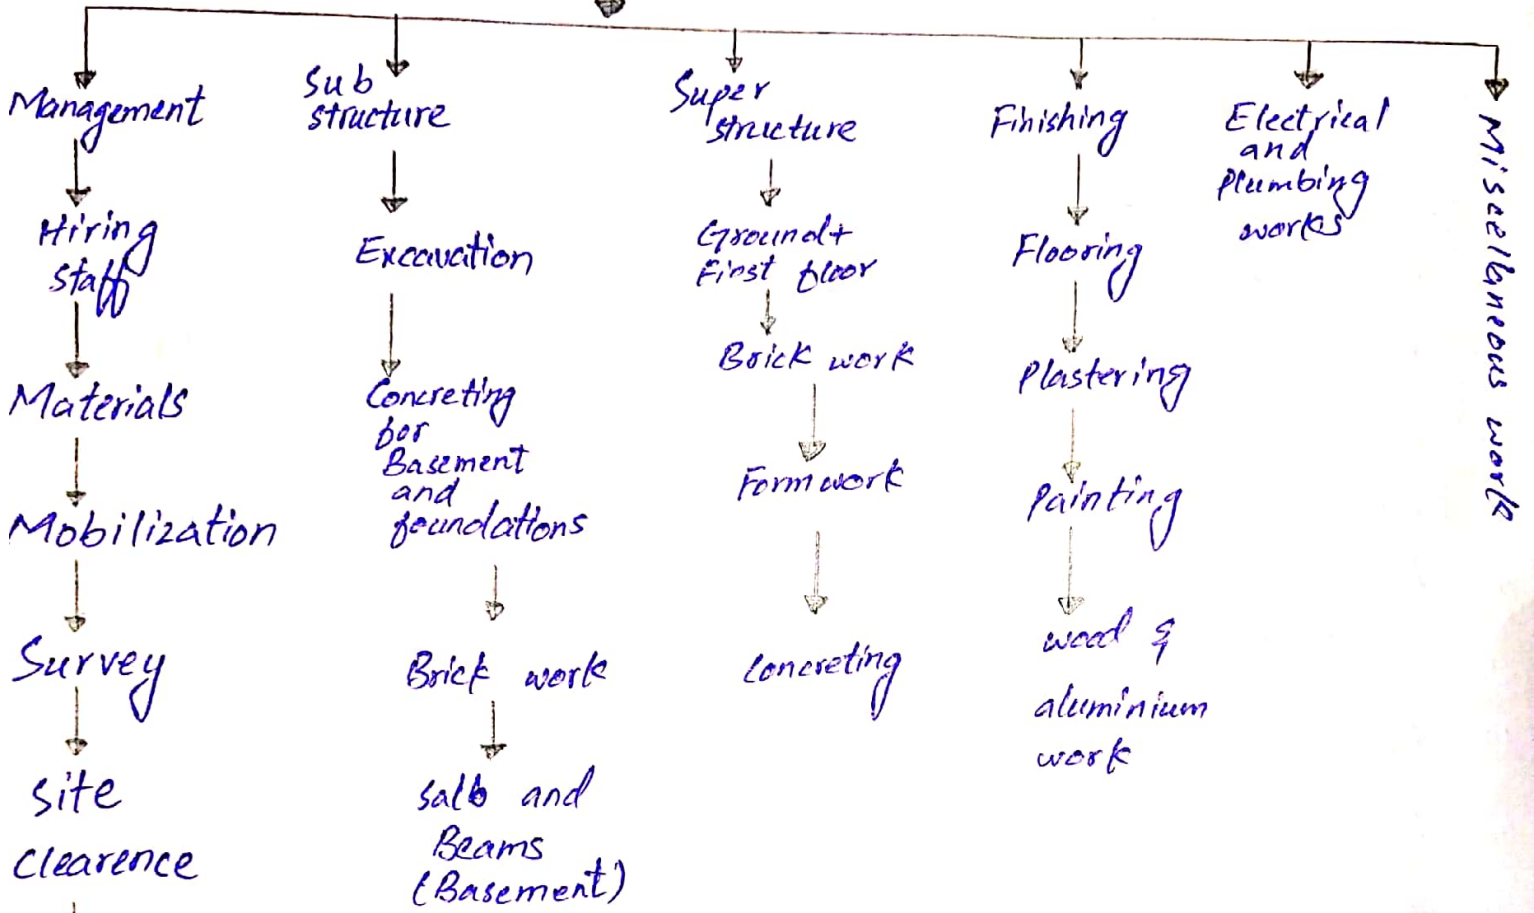 Management
Hiring
staff
Materials
Mobilization
Survey
site
Clearence
Sub
structure
Excavation
Concreting
for
Basement
and
foundations
Brick work
Salb and
Beams
(Basement)
Super
structure
Ground+
First floor
Brick work
Form work
Concreting
Finishing
Flooring
Plastering
Painting
wood &
aluminium
work
Electrical
and
Plumbing
works
Miscellaneous work